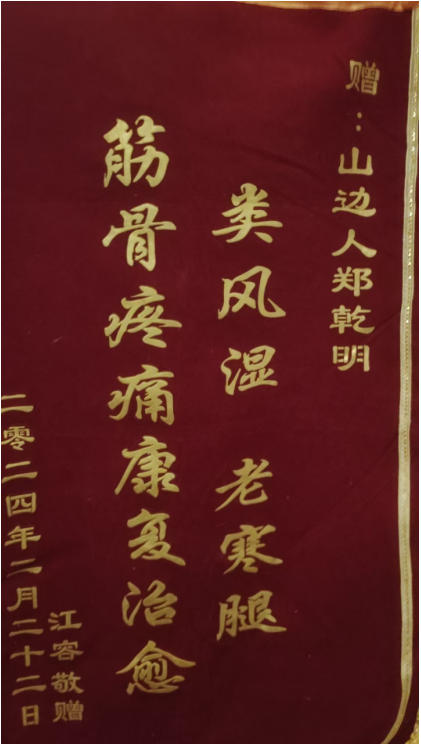 赠：山边人郑乾明
类风湿 老寒腿
筋骨疼痛康复治愈
江容敬赠
二零二四年二月二十二日